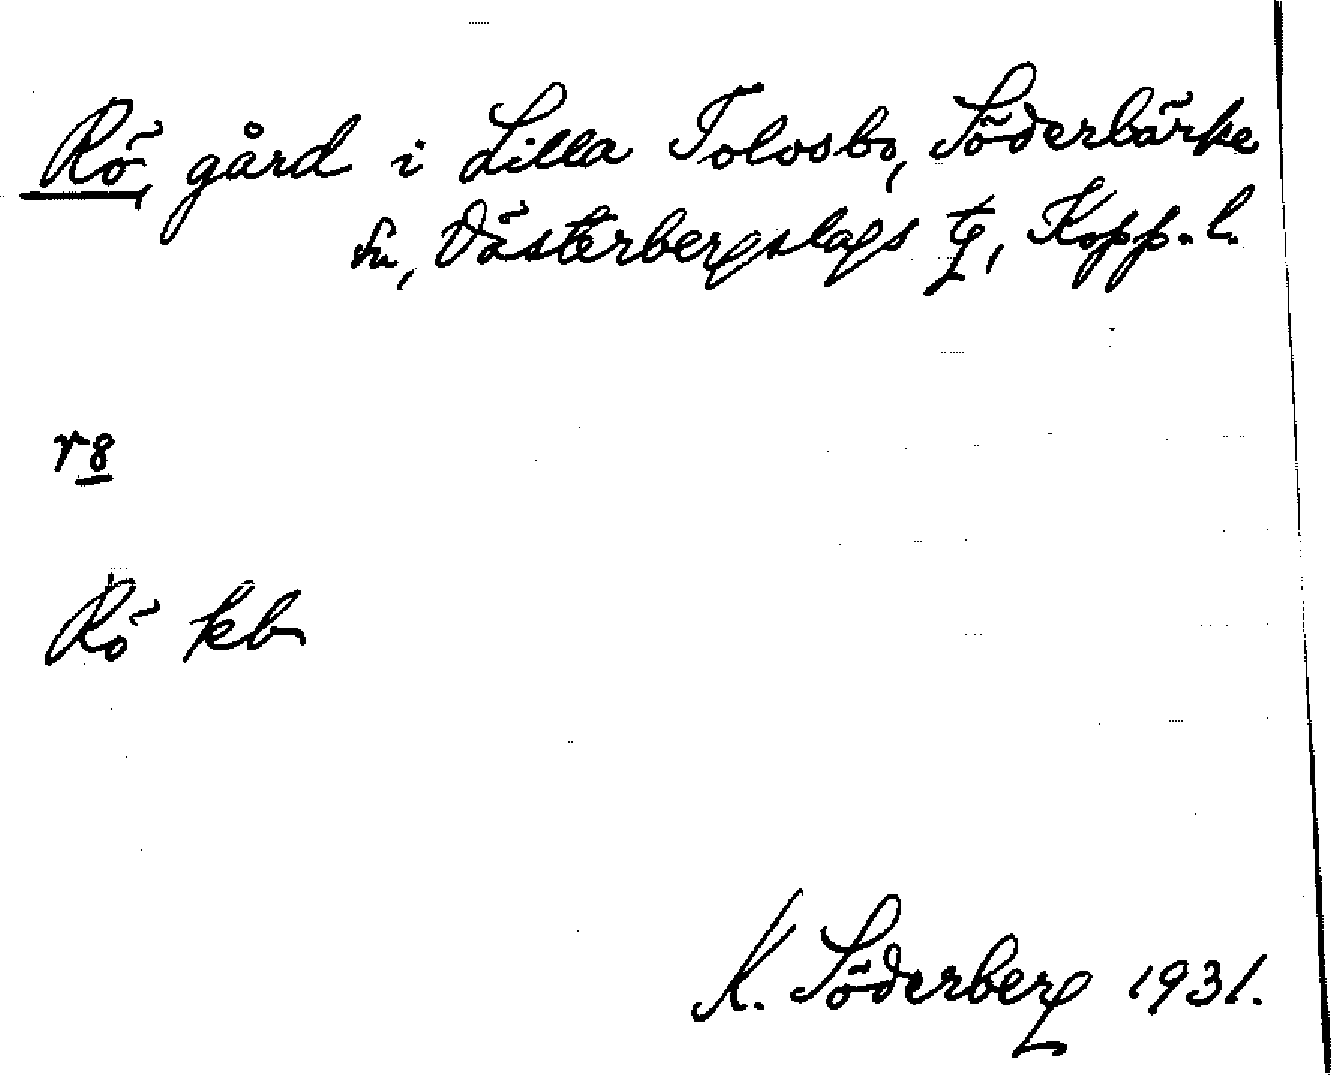 Rö, gård i Lilla Tolvsbo, Söderbärke
sn, Västerbergslags tg, Kopp.l.
r8
Rö kb
K. Söderberg 1931.